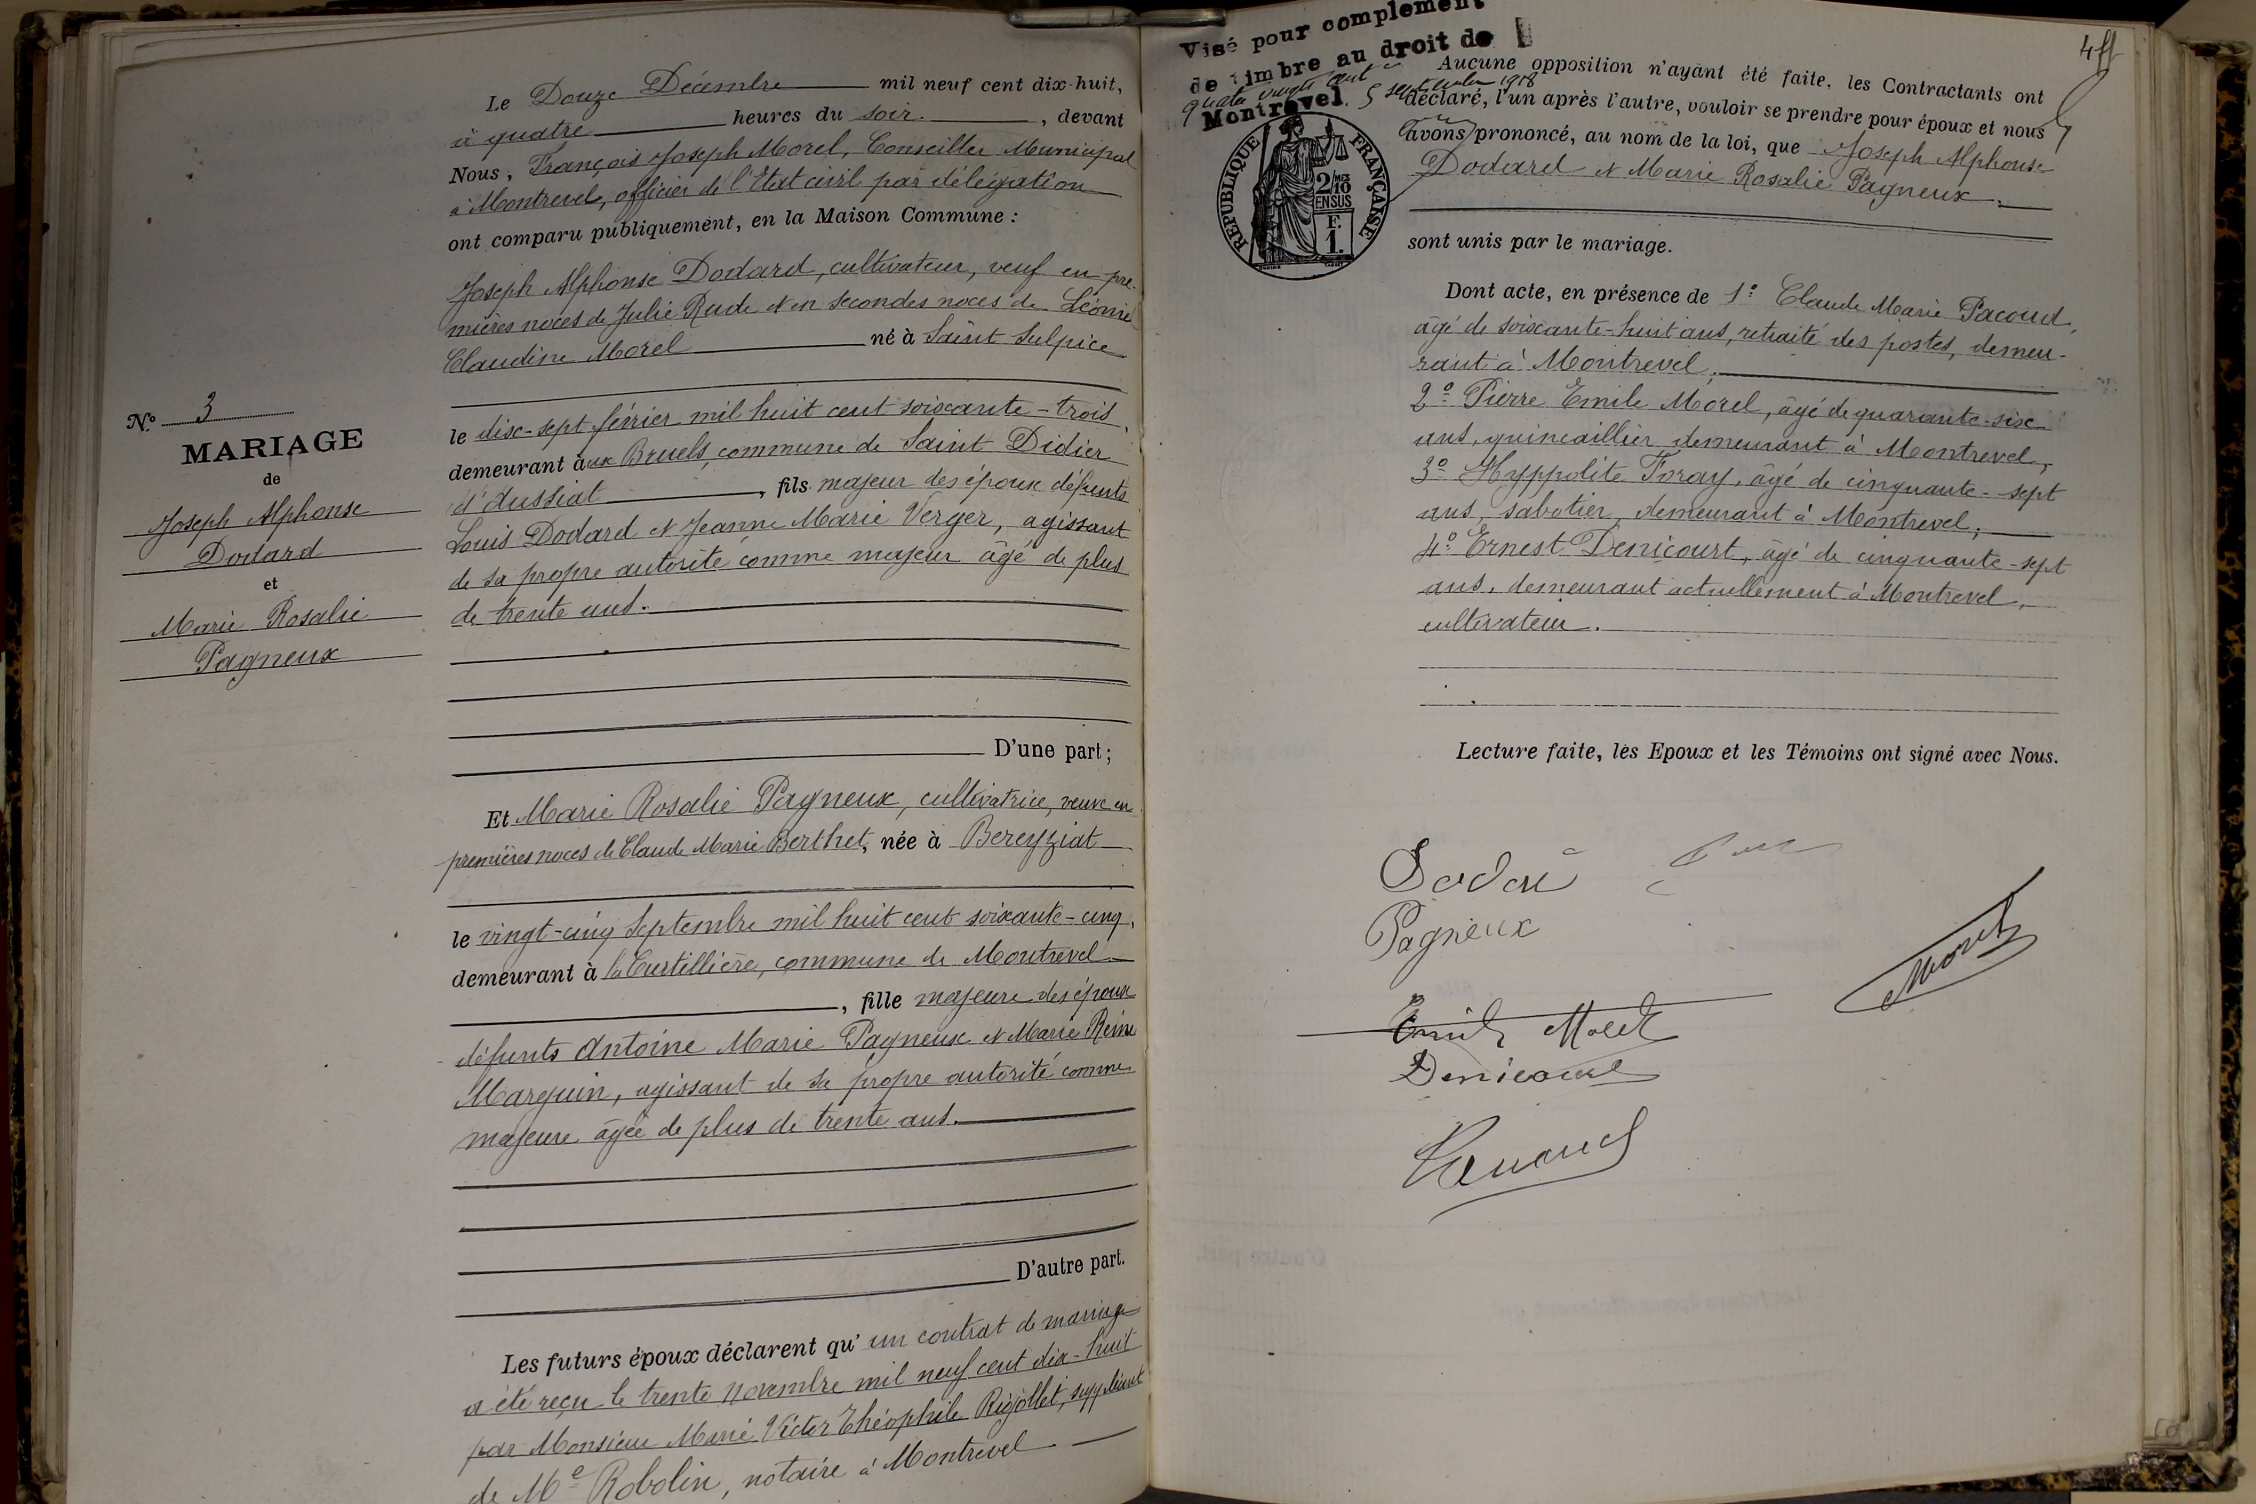 N.° 3
MARIAGE
de
Joseph Alphonse
Dodard
et
Marie Rosalie
Pagneux
Le Douze Décembre mil neuf cent dix-huit,
à quatre heures du soir, devant
Nous, François Joseph Morel, Conseiller Municipal
à Montrevel, officier de l'Etat civil par délégation
ont comparu publiquement, en la Maison Commune :
Joseph Alphonse Dodard, cultivateur, veuf en pre-
mières noces de Julie Rude et en secondes noces de Léonie
Claudine Morel né à Saint Sulpice
le dix-sept février mil huit cent soixante-trois,
demeurant aux Bruels, commune de Saint Didier
d'Aussiat, fils majeur des époux défunts
Louis Dodard et Jeanne Marie Verger, agissant
de sa propre autorité comme majeur âgé de plus
de trente ans.
D'une part ;
Et Marie Rosalie Pagneux, cultivatrice, veuve en
premières noces de Claude Marie Berthet, née à Bereyziat
le vingt-cinq Septembre mil huit cent soixante-cinq,
demeurant à la Curtillière, commune de Montrevel
, fille majeure des époux
défunts Antoine Marie Pagneux et Marie Reine
Marguin, agissant de sa propre autorité comme
majeure âgée de plus de trente ans.
D'autre part.
Les futurs époux déclarent qu'un contrat de mariage
a été reçu le trente novembre mil neuf cent dix-huit
par Monsieur Marie Victor Théophile Rigollet, suppléant
de Me Robolin, notaire à Montrevel
Visé pour complément
de timbre au droit de
quatre vingts cent
Montrevel. 5 septembre 1918
RÉPUBLIQUE FRANÇAISE
2/10
EN SUS
F.
1.
Aucune opposition n'ayant été faite, les Contractants ont
déclaré, l'un après l'autre, vouloir se prendre pour époux et nous
avons prononcé, au nom de la loi, que Joseph Alphonse
Dodard et Marie Rosalie Pagneux
sont unis par le mariage.
Dont acte, en présence de 1° Claude Marie Pacoud,
âgé de soixante-huit ans, retraité des postes, demeu-
rant à Montrevel,
2° Pierre Emile Morel, âgé de quarante-six
ans, quincaillier demeurant à Montrevel,
3° Hyppolite Foray, âgé de cinquante-sept
ans, sabotier, demeurant à Montrevel,
4° Ernest Denicourt, âgé de cinquante-sept
ans, demeurant actuellement à Montrevel,
cultivateur.
Lecture faite, les Epoux et les Témoins ont signé avec Nous.
Pagneux
Emile Morel
Denicourt
Morel